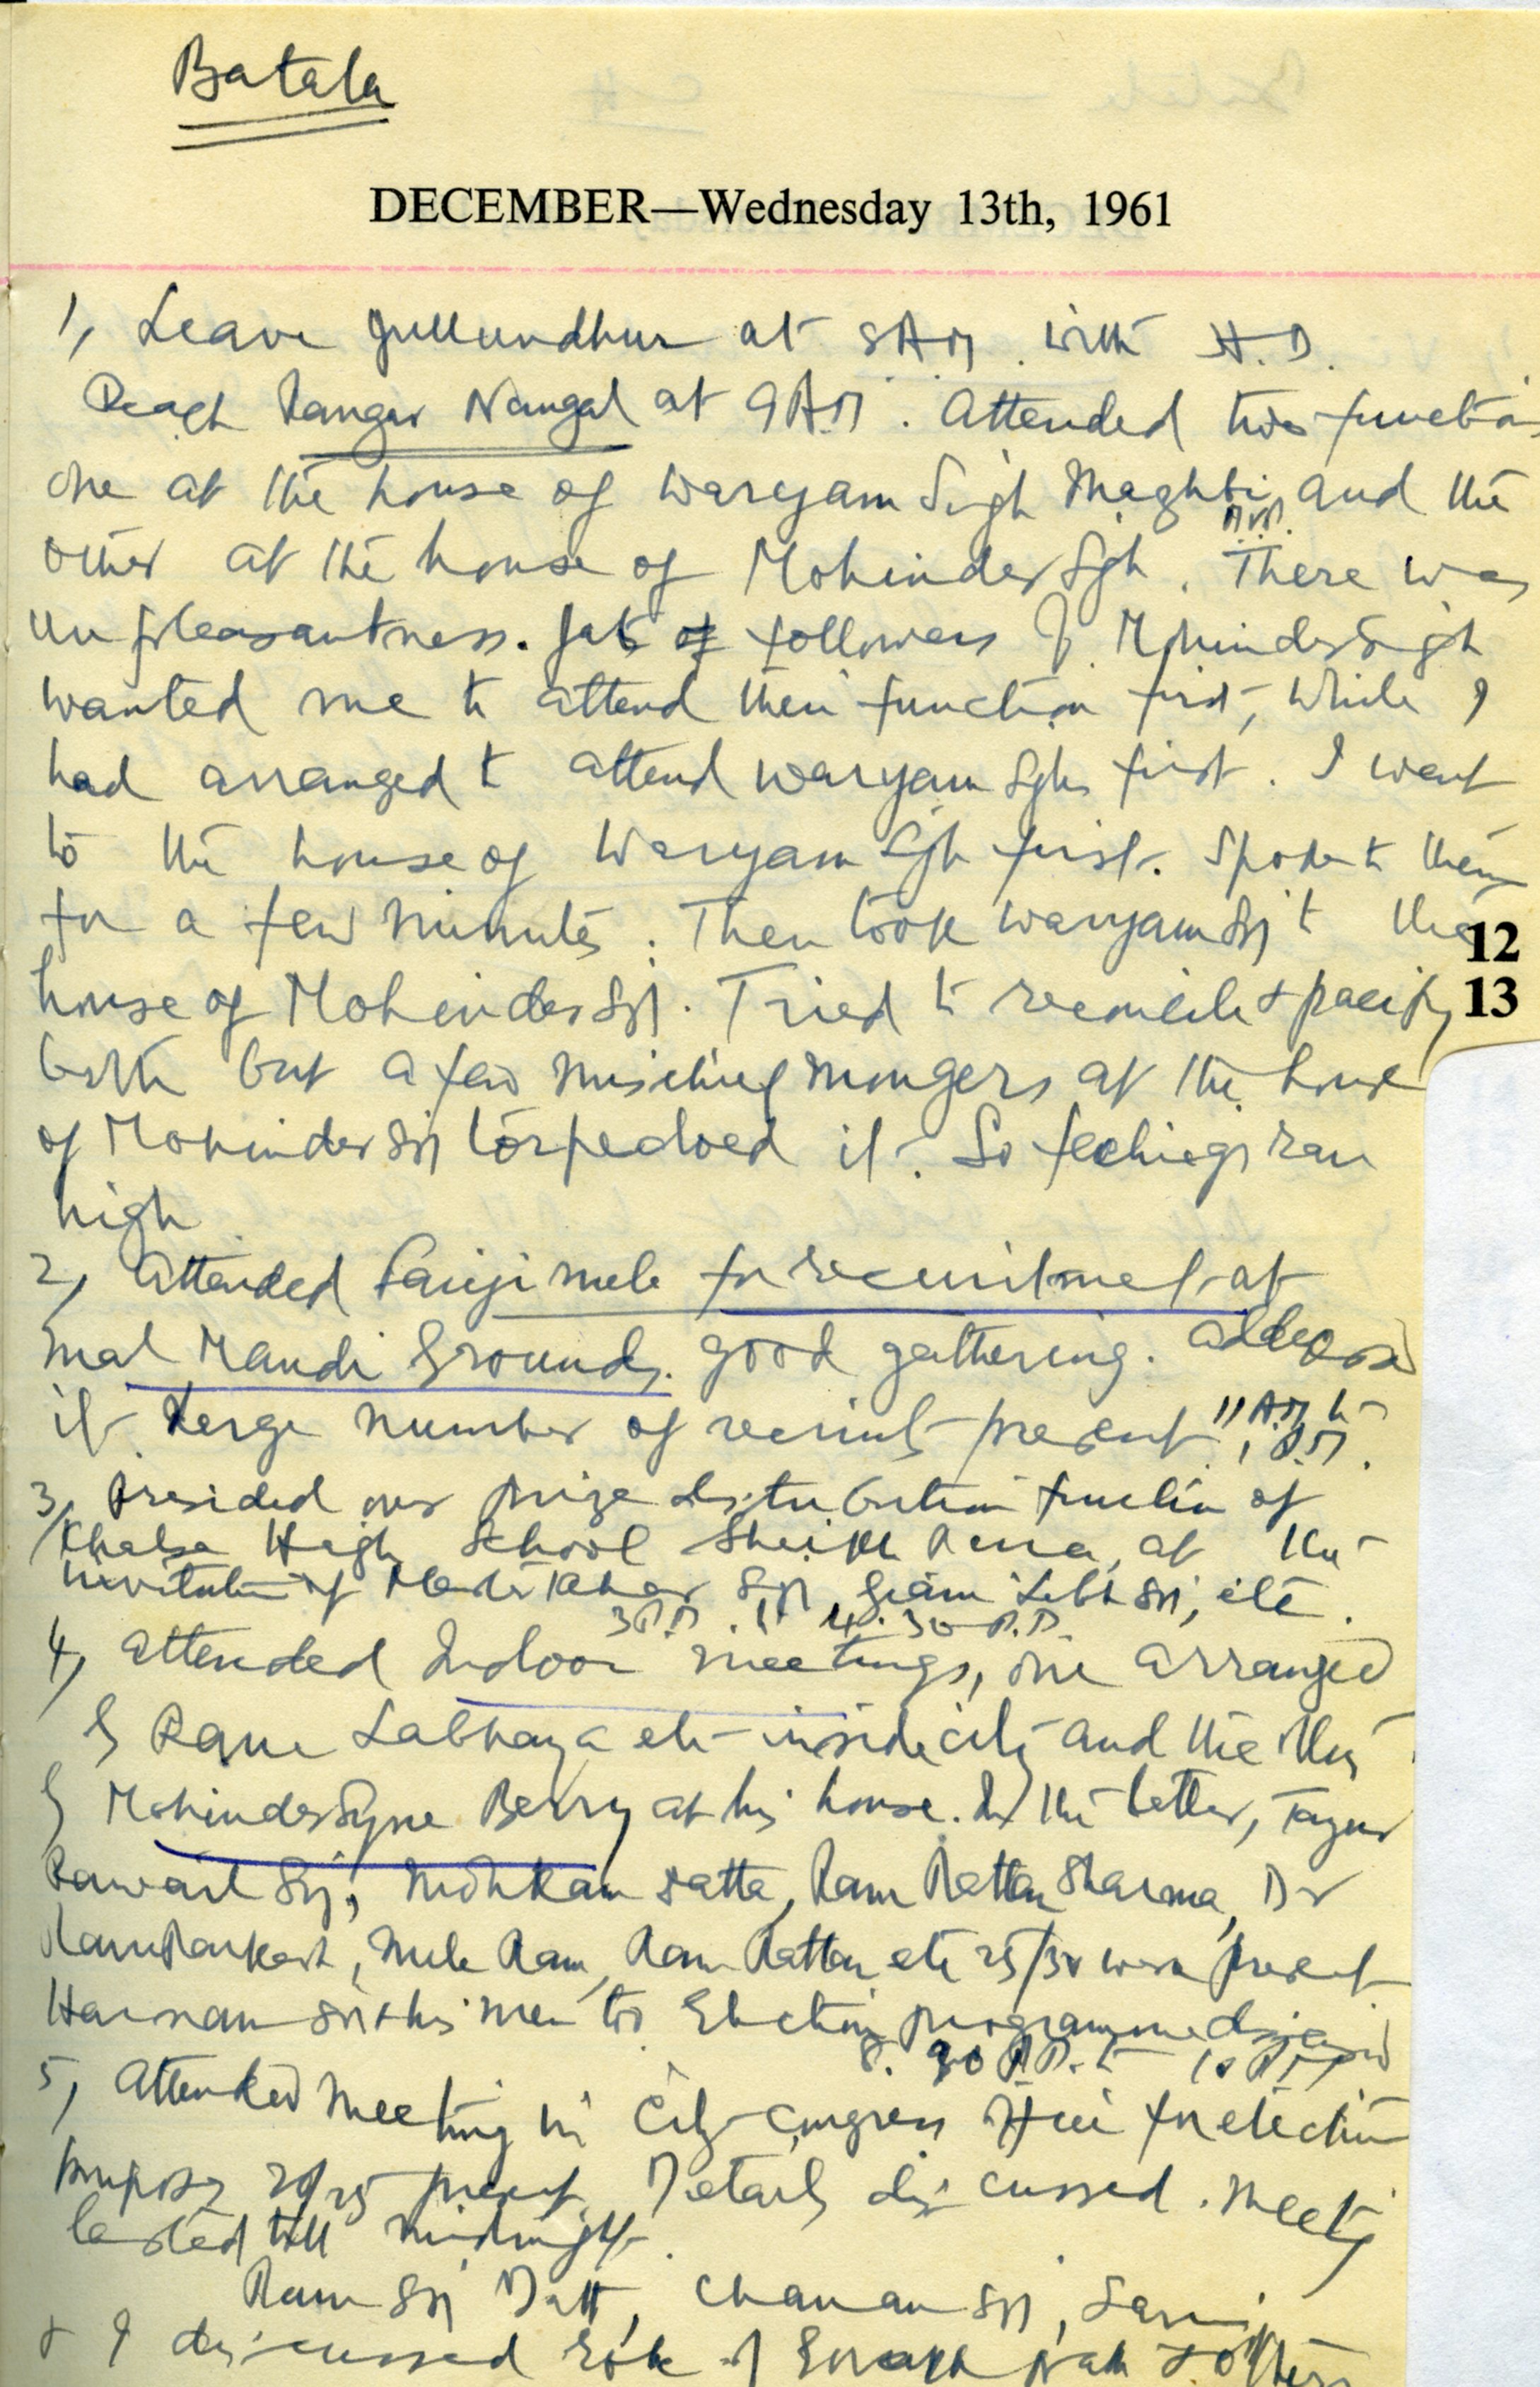 Batala
DECEMBER—Wednesday 13th, 1961
1, Leave Jullundhur at 8 A.M. with H.D.
Reach Rangar Nangal at 9 A.M. Attended two function
one at the house of Waryam Singh Maghbi and the
other at the house of Mohinder Sgh. There was
unpleasantness. Jats of followers of Mohinder Singh
wanted me to attend their function first, while I
had arranged to attend Waryam Sghs first. I went
to the house of Waryam Sgh first. Spoke to them
for a few minutes. Then took Waryam Sgh to the
12
house of Mohinder Sgh. Tried to reconcile & pacify
13
both but a few mischief mongers at the house
of Mohinder Sgh torpedoed it. So feelings ran
high
2, Attended Fauji mela for recruitment at
Mal Mandi Grounds. Good gathering. Addressed
it. Large number of recruits present. 11 A.M. to
1 P.M.
3, Presided over prize distribution function of
Khalsa High School Sheikh at the
invitation of Master Sgh Giani Labh Sgh, etc.
3 P.M. to 4.30 P.M.
4, Attended Indoor meetings, one arranged
by Ram Labhaya etc inside city and the other
by Mohinder Berry at his house. In the latter,
Sgh, Mohkam Datta, Ram Rattan Sharma, Dr
Ram Parkash, Mela Ram, Ram Rattan etc 25/30 were present
Harnam Sgh & his men too. Election programme discussed
8. P.M. to 10 P.M.
5, Attended meeting in City Congress Office for election
purposes 20/25 present. Details discussed. Meeting
lasted till midnight.
Ram Sgh Datt, Chanan Sgh,
& I discussed role of & others